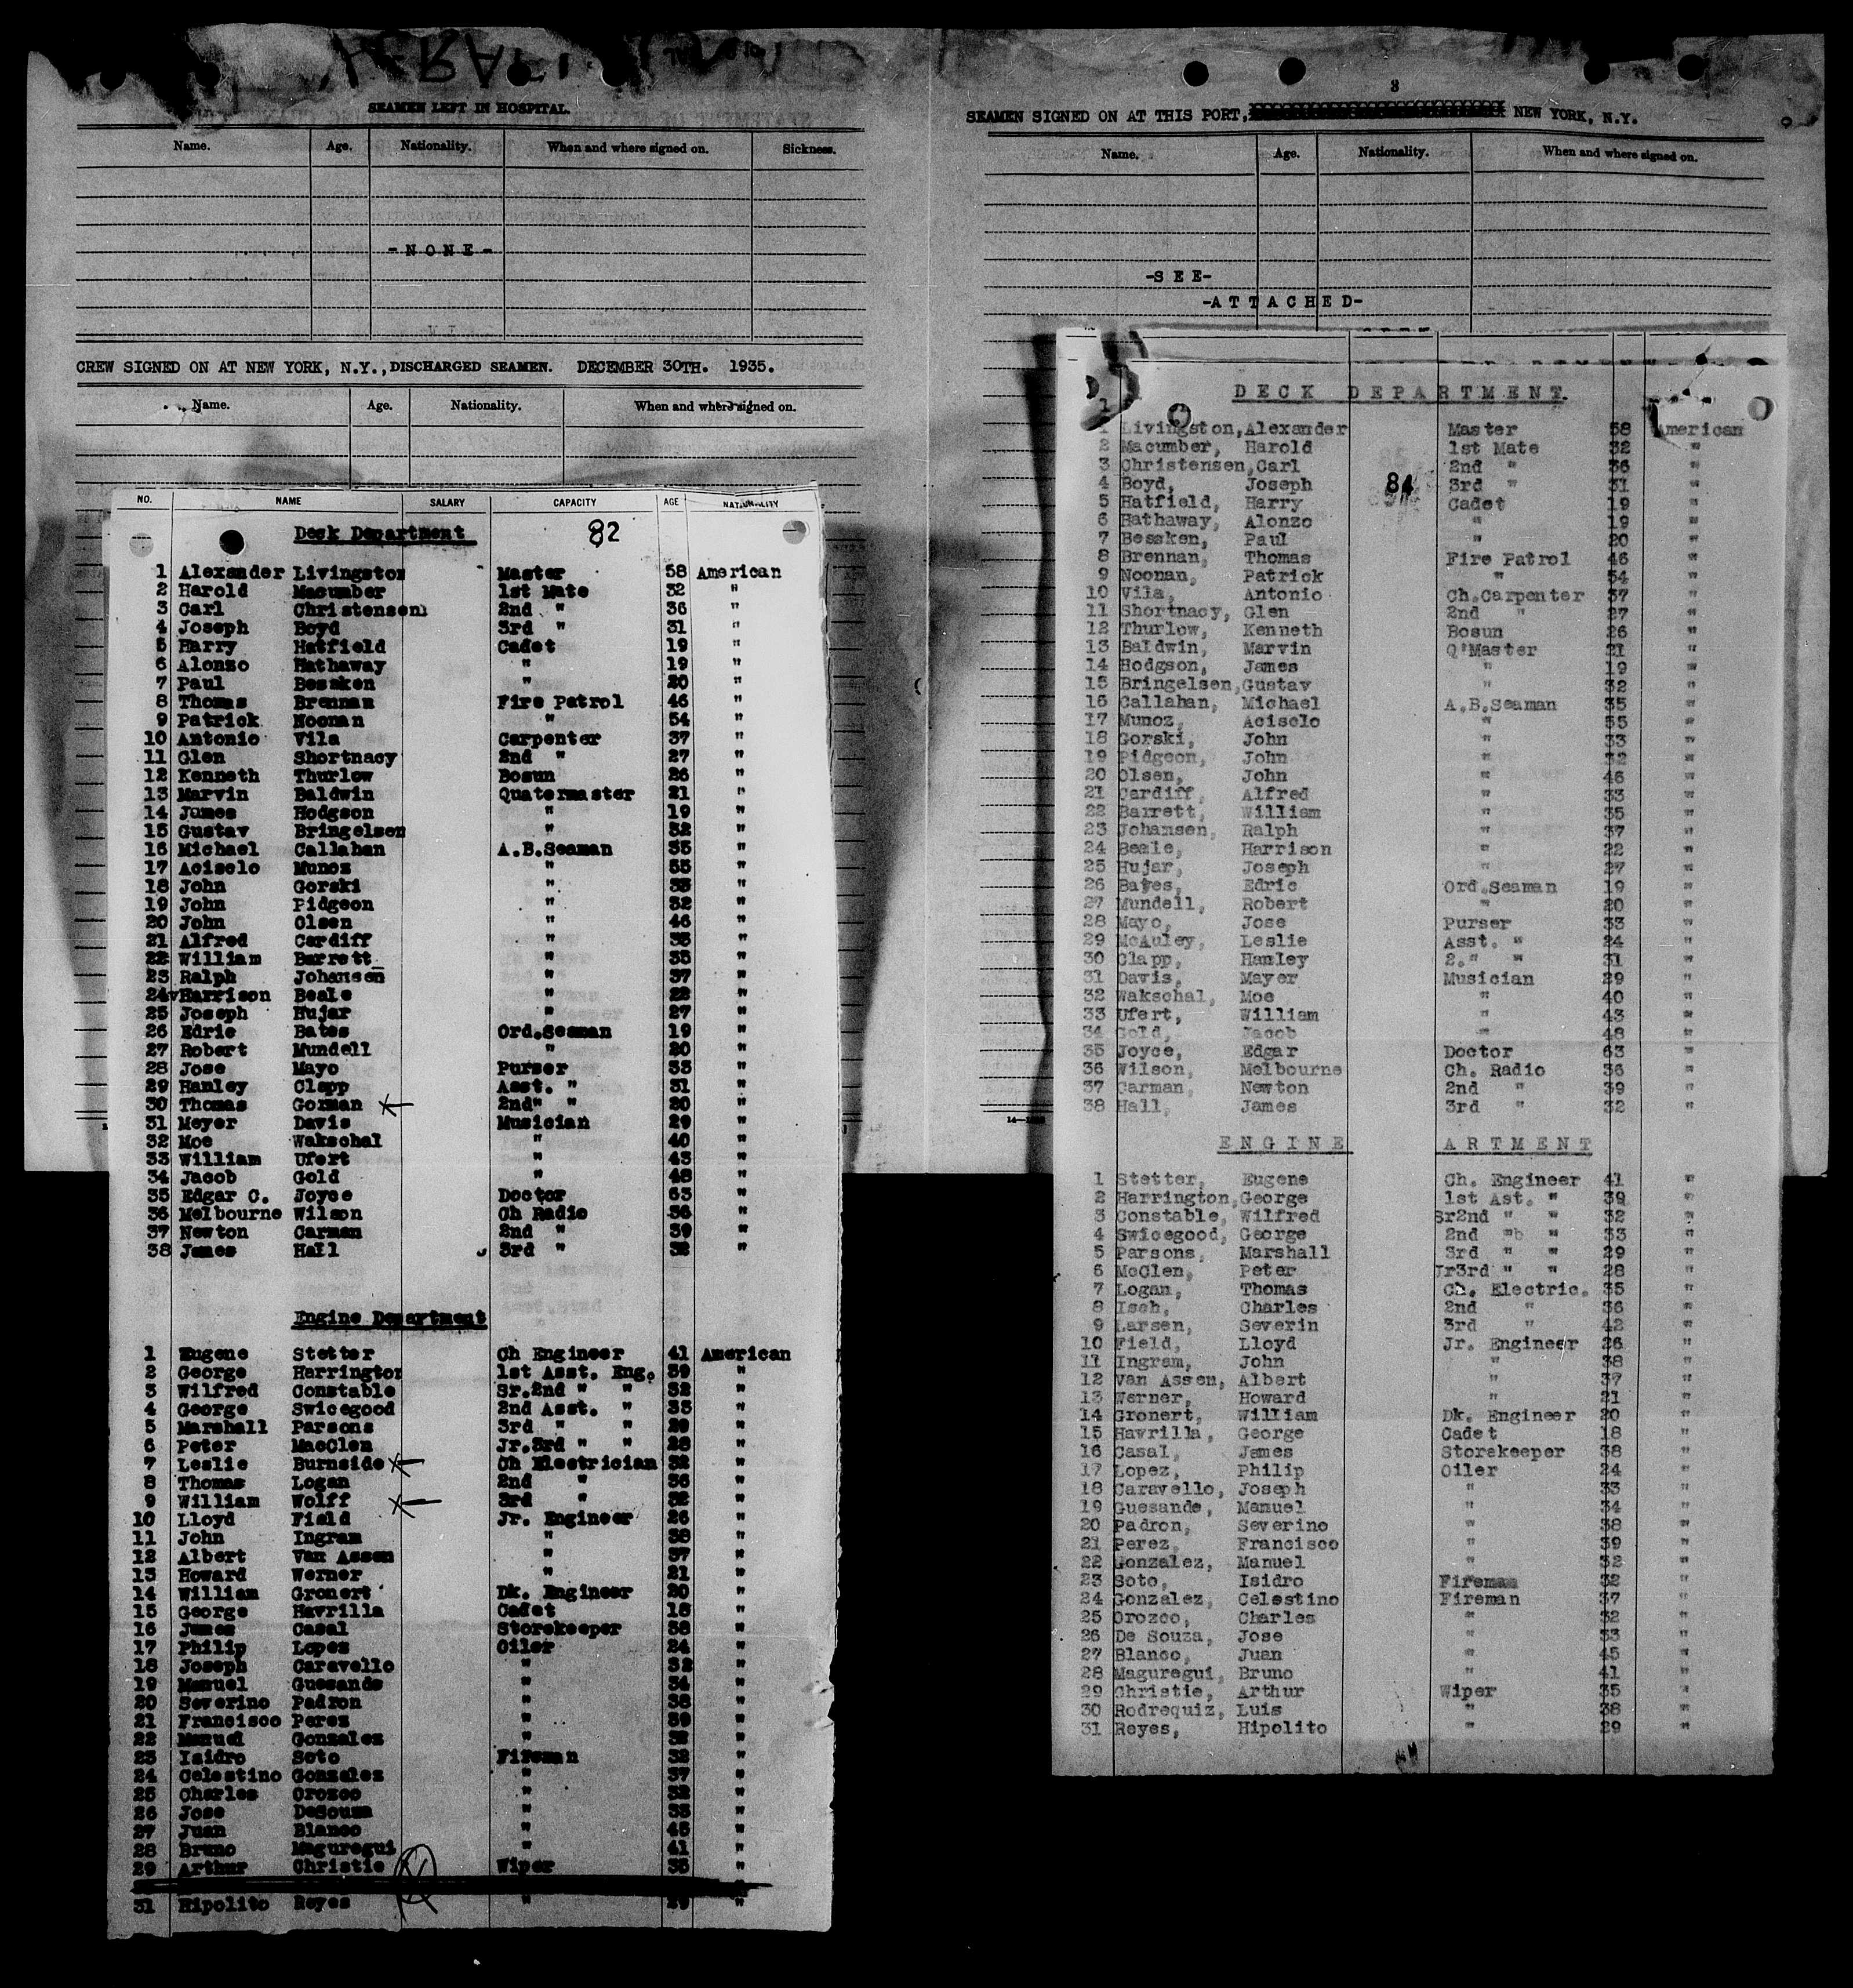 SEAMEN LEFT IN HOSPITAL.
Name. Age. Nationality. When and where signed on. Sickness.
-NONE-
CREW SIGNED ON AT NEW YORK, N.Y., DISCHARGED SEAMEN. DECEMBER 30TH. 1935.
Name. Age. Nationality. When and where signed on.
NO. NAME SALARY CAPACITY AGE NATIONALITY
Deck Department 82
1 Alexander Livingston Master 58 American
2 Harold Macumber 1st Mate 32 "
3 Carl Christensen 2nd " 36 "
4 Joseph Boyd 3rd " 31 "
5 Harry Hatfield Cadet 19 "
6 Alonzo Hathaway " 19 "
7 Paul Bessken " 20 "
8 Thomas Brennan Fire Patrol 46 "
9 Patrick Noonan " 54 "
10 Antonio Vila Carpenter 37 "
11 Glen Shortnacy 2nd " 27 "
12 Kenneth Thurlow Bosun 26 "
13 Marvin Baldwin Quatermaster 21 "
14 James Hodgson " 19 "
15 Gustav Bringelsen " 32 "
16 Michael Callahan A.B.Seaman 35 "
17 Acisclo Munoz " 55 "
18 John Gorski " 33 "
19 John Pidgeon " 32 "
20 John Olsen " 46 "
21 Alfred Cardiff " 33 "
22 William Barrett " 35 "
23 Ralph Johansen " 37 "
24 Harrison Beale " 22 "
25 Joseph Hujar " 27 "
26 Edric Bates Ord.Seaman 19 "
27 Robert Mundell " 20 "
28 Jose Mayo Purser 33 "
29 Hanley Clapp Asst. " 31 "
30 Thomas Gorman 2nd" " 20 "
31 Meyer Davis Musician 29 "
32 Moe Wakschal " 40 "
33 William Ufert " 43 "
34 Jacob Gold " 48 "
35 Edgar C. Joyce Doctor 63 "
36 Melbourne Wilson Ch Radio 36 "
37 Newton Carman 2nd " 39 "
38 James Hall 3rd " 32 "
Engine Department
1 Eugene Stetter Ch Engineer 41 American
2 George Harrington 1st Asst. Eng. 39 "
3 Wilfred Constable Sr.2nd " " 32 "
4 George Swicegood 2nd Asst. " 33 "
5 Marshall Parsons 3rd " " 29 "
6 Peter MacClen Jr.3rd " " 28 "
7 Leslie Burnside Ch Electrician 32 "
8 Thomas Logan 2nd " 36 "
9 William Wolff 3rd " 32 "
10 Lloyd Field Jr. Engineer 26 "
11 John Ingram " 38 "
12 Albert Van Assen " 37 "
13 Howard Werner " 21 "
14 William Gronert Dk. Engineer 20 "
15 George Havrilla Cadet 18 "
16 James Casal Storekeeper 38 "
17 Philip Lopez Oiler 24 "
18 Joseph Caravello " 32 "
19 Manuel Guesande " 34 "
20 Severino Padron " 38 "
21 Francisco Perez " 39 "
22 Manuel Gonzalez " 32 "
23 Isidro Soto Fireman 32 "
24 Celestino Gonzalez " 37 "
25 Charles Orozco " 32 "
26 Jose DeSouza " 33 "
27 Juan Blanco " 45 "
28 Bruno Maguregui " 41 "
29 Arthur Christie Wiper 35 "
31 Hipolito Reyes " 29 "
3
SEAMEN SIGNED ON AT THIS PORT, NEW YORK, N.Y.
Name. Age. Nationality. When and where signed on.
-SEE-
-ATTACHED-
DECK DEPARTMENT.
1 Livingston, Alexander Master 58 American
2 Macumber, Harold 1st Mate 32 "
3 Christensen, Carl 2nd " 36 "
4 Boyd, Joseph 84 3rd " 31 "
5 Hatfield, Harry Cadet 19 "
6 Hathaway, Alonzo " 19 "
7 Bessken, Paul " 20 "
8 Brennan, Thomas Fire Patrol 46 "
9 Noonan, Patrick " 54 "
10 Vila, Antonio Ch.Carpenter 37 "
11 Shortnacy, Glen 2nd " 27 "
12 Thurlow, Kenneth Bosun 26 "
13 Baldwin, Marvin Q'Master 21 "
14 Hodgson, James " 19 "
15 Bringelsen, Gustav " 32 "
16 Callahan, Michael A.B.Seaman 35 "
17 Munoz, Acisclo " 55 "
18 Gorski, John " 33 "
19 Pidgeon, John " 32 "
20 Olsen, John " 46 "
21 Cardiff, Alfred " 33 "
22 Barrett, William " 35 "
23 Johansen, Ralph " 37 "
24 Beale, Harrison " 22 "
25 Hujar, Joseph " 27 "
26 Bates, Edric Ord.Seaman 19 "
27 Mundell, Robert " 20 "
28 Mayo, Jose Purser 33 "
29 McAuley, Leslie Asst. " 24 "
30 Clapp, Hanley 2." " 31 "
31 Davis, Mayer Musician 29 "
32 Wakschal, Moe " 40 "
33 Ufert, William " 43 "
34 Gold, Jacob " 48 "
35 Joyce, Edgar Doctor 63 "
36 Wilson, Melbourne Ch. Radio 36 "
37 Carman, Newton 2nd " 39 "
38 Hall, James 3rd " 32 "
ENGINE ARTMENT
1 Stetter, Eugene Ch. Engineer 41 "
2 Harrington, George 1st Ast. " 39 "
3 Constable, Wilfred Sr2nd " " 32 "
4 Swicegood, George 2nd "b " 33 "
5 Parsons, Marshall 3rd " " 29 "
6 McClen, Peter Jr3rd " " 28 "
7 Logan, Thomas Ch. Electric. 35 "
8 Iseh, Charles 2nd " 36 "
9 Larsen, Severin 3rd " 42 "
10 Field, Lloyd Jr. Engineer 26 "
11 Ingram, John " 38 "
12 Van Assen, Albert " 37 "
13 Werner, Howard " 21 "
14 Gronert, William Dk. Engineer 20 "
15 Havrilla, George Cadet 18 "
16 Casal, James Storekeeper 38 "
17 Lopez, Philip Oiler 24 "
18 Caravello, Joseph " 33 "
19 Guesande, Manuel " 34 "
20 Padron, Severino " 38 "
21 Perez, Francisco " 39 "
22 Gonzalez, Manuel " 32 "
23 Soto, Isidro Fireman 32 "
24 Gonzalez, Celestino Fireman 37 "
25 Orozco, Charles " 32 "
26 De Souza, Jose " 33 "
27 Blanco, Juan " 45 "
28 Maguregui, Bruno " 41 "
29 Christie, Arthur Wiper 35 "
30 Rodrequiz, Luis " 38 "
31 Reyes, Hipolito " 29 "